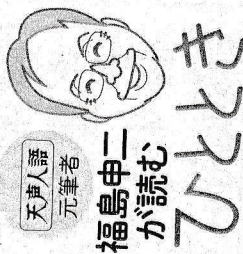 天声人語
元筆者
福島申二
が読む
ひととき